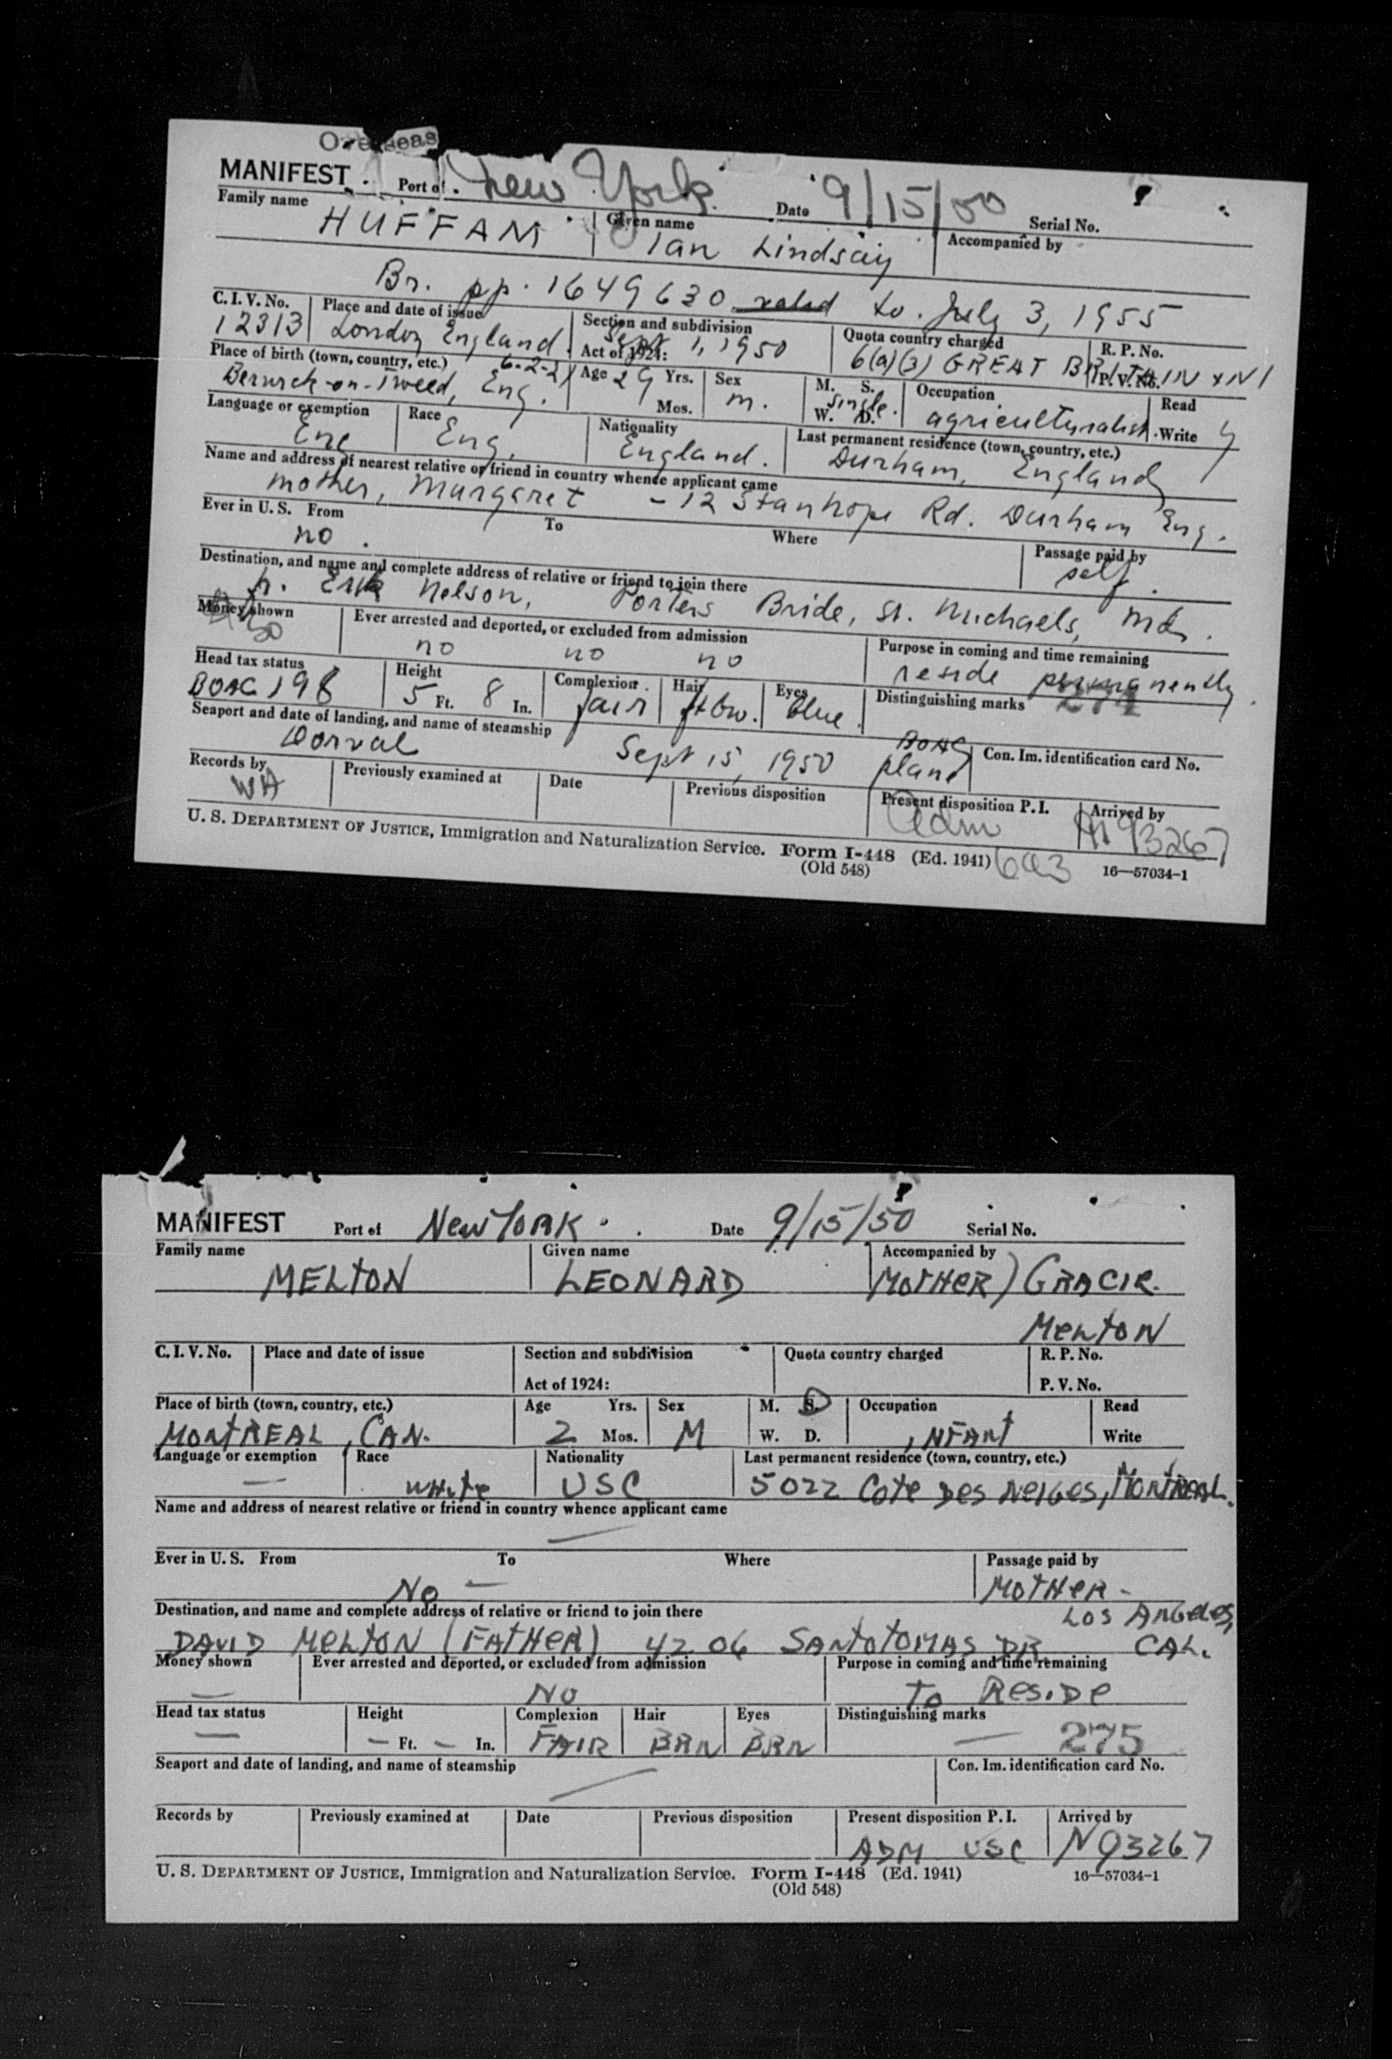 Overseas
MANIFEST Port of New York Date 9/15/50 Serial No.
Family name Given name Accompanied by
HUFFAM Ian Lindsay
Br. pp. 1649630 valid to July 3, 1955
C. I. V. No. Place and date of issue Section and subdivision Quota country charged R. P. No.
12313 London England Act of 1924: Sept 1, 1950 6(a)(3) GREAT BRITAIN + NI P. V. No.
Place of birth (town, country, etc.) 6-2-21 Age 29 Yrs. Sex M. S. Occupation Read
Berwick-on-Tweed, Eng. Mos. m. W. D. single. agriculturalist. Write y
Language or exemption Race Nationality Last permanent residence (town, country, etc.)
Eng Eng. England. Durham, England
Name and address of nearest relative or friend in country whence applicant came
mother, Margaret - 12 Stanhope Rd. Durham Eng.
Ever in U. S. From To Where Passage paid by
no. self.
Destination, and name and complete address of relative or friend to join there
Nelson, Porters Bride, St. Michaels, Md.
Money shown Ever arrested and deported, or excluded from admission Purpose in coming and time remaining
50 no no no reside permanently.
Head tax status Height Complexion Hair Eyes Distinguishing marks 274
BOAC 198 5 Ft. 8 In. fair blue.
Seaport and date of landing, and name of steamship Con. Im. identification card No.
Dorval Sept 15, 1950 BOAC plane
Records by Previously examined at Date Previous disposition Present disposition P. I. Arrived by
WA Adm N93267
U. S. DEPARTMENT OF JUSTICE, Immigration and Naturalization Service. Form I-448 (Ed. 1941) 603 16—57034-1
(Old 548)
MANIFEST Port of New YORK Date 9/15/50 Serial No.
Family name Given name Accompanied by
MELTON LEONARD MOTHER) GRACIE
MELTON
C. I. V. No. Place and date of issue Section and subdivision Quota country charged R. P. No.
Act of 1924: P. V. No.
Place of birth (town, country, etc.) Age Yrs. Sex M. S. Occupation Read
MONTREAL, CAN. 2 Mos. M W. D. INFANT Write
Language or exemption Race Nationality Last permanent residence (town, country, etc.)
— WHITE USC 5022 COTE DES NEIGES, MONTREAL.
Name and address of nearest relative or friend in country whence applicant came
—
Ever in U. S. From To Where Passage paid by
No — MOTHER -
Destination, and name and complete address of relative or friend to join there LOS ANGELES,
DAVID MELTON (FATHER) 4206 SANTO TOMAS DR. CAL.
Money shown Ever arrested and deported, or excluded from admission Purpose in coming and time remaining
— NO TO RESIDE
Head tax status Height Complexion Hair Eyes Distinguishing marks
— — Ft. — In. FAIR BRN BRN — 275
Seaport and date of landing, and name of steamship Con. Im. identification card No.
—
Records by Previously examined at Date Previous disposition Present disposition P. I. Arrived by
ADM USC N93267
U. S. DEPARTMENT OF JUSTICE, Immigration and Naturalization Service. Form I-448 (Ed. 1941) 16—57034-1
(Old 548)